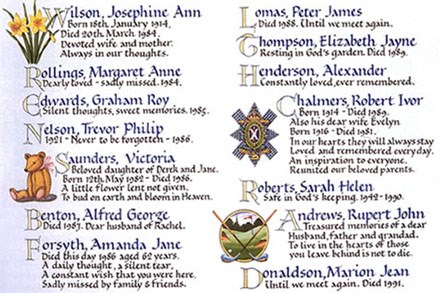 Wilson, Josephine Ann
Born 18th January 1914,
Died 20th March 1984.
Devoted wife and mother.
Always in our thoughts.
Rollings, Margaret Anne
Dearly loved - sadly missed. 1984.
Edwards, Graham Roy
Silent thoughts, sweet memories. 1985.
Nelson, Trevor Philip
1921 - Never to be forgotten - 1986.
Saunders, Victoria
Beloved daughter of Derek and Jane.
Born 12th May 1982 - Died 1986.
A little flower lent not given,
To bud on earth and bloom in Heaven.
Benton, Alfred George
Died 1987. Dear husband of Rachel.
Forsyth, Amanda Jane
Died this day 1986 aged 62 years.
A daily thought, a silent tear,
A constant wish that you were here.
Sadly missed by family & friends.
Lomas, Peter James
Died 1988. Until we meet again.
Thompson, Elizabeth Jayne
Resting in God's garden. Died 1989.
Henderson, Alexander
Constantly loved, ever remembered.
Chalmers, Robert Ivor
Born 1914 - Died 1989.
Also his dear wife Evelyn
Born 1916 - Died 1981.
In our hearts they will always stay
Loved and remembered every day.
An inspiration to everyone.
Reunited our beloved parents.
Roberts, Sarah Helen
Safe in God's keeping. 1942-1990.
Andrews, Rupert John
Treasured memories of a dear
Husband, father and grandad.
To live in the hearts of those
you leave behind is not to die.
Donaldson, Marion Jean
Until we meet again. Died 1991.